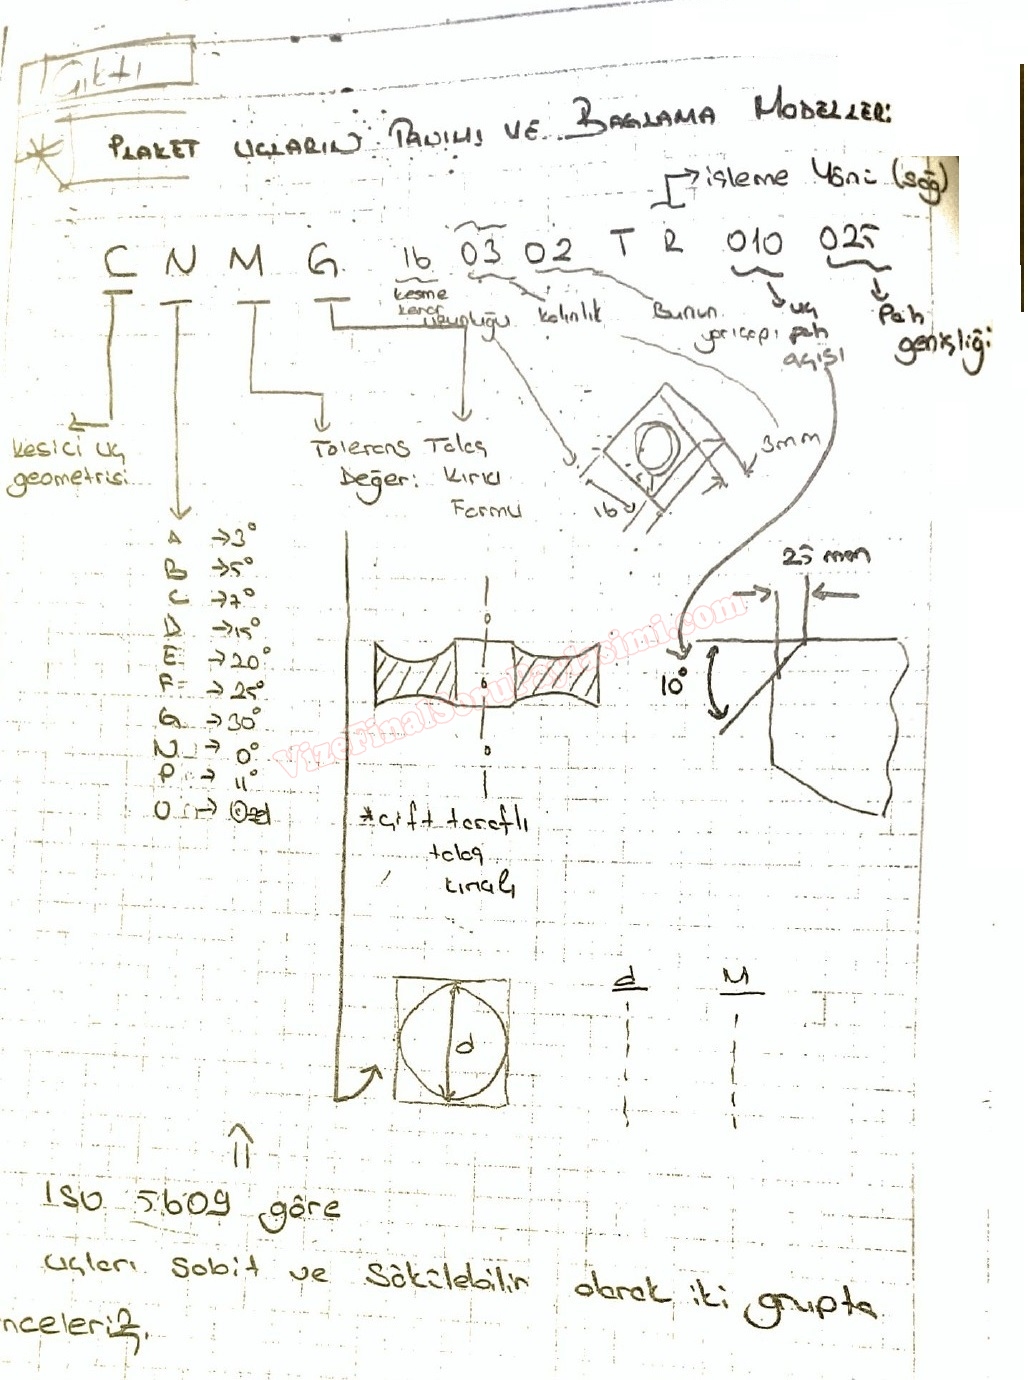 Çıktı
PLAKET UÇLARIN TANIMI VE BAĞLAMA MODELLERİ
işleme Yönü (sağ)
C N M G 16 03 02 T R 010 025
kesme kenar uzunluğu
kalınlık
Burun yarıçapı
uç pah açısı
Pah genişliği
kesici uç geometrisi
Tolerans Değeri
Talaş Kırıcı Formu
16
3mm
A → 3°
B → 5°
C → 7°
D → 15°
E → 20°
F → 25°
G → 30°
N → 0°
P → 11°
O → Özel
25 mm
10°
*Çift taraflı
talaş
kırıcılı
d
d M
VizeFinalSoruPaylasimi.com
ISO 5609 göre
uçları sabit ve sökülebilir olarak iki grupta
nceleriz.